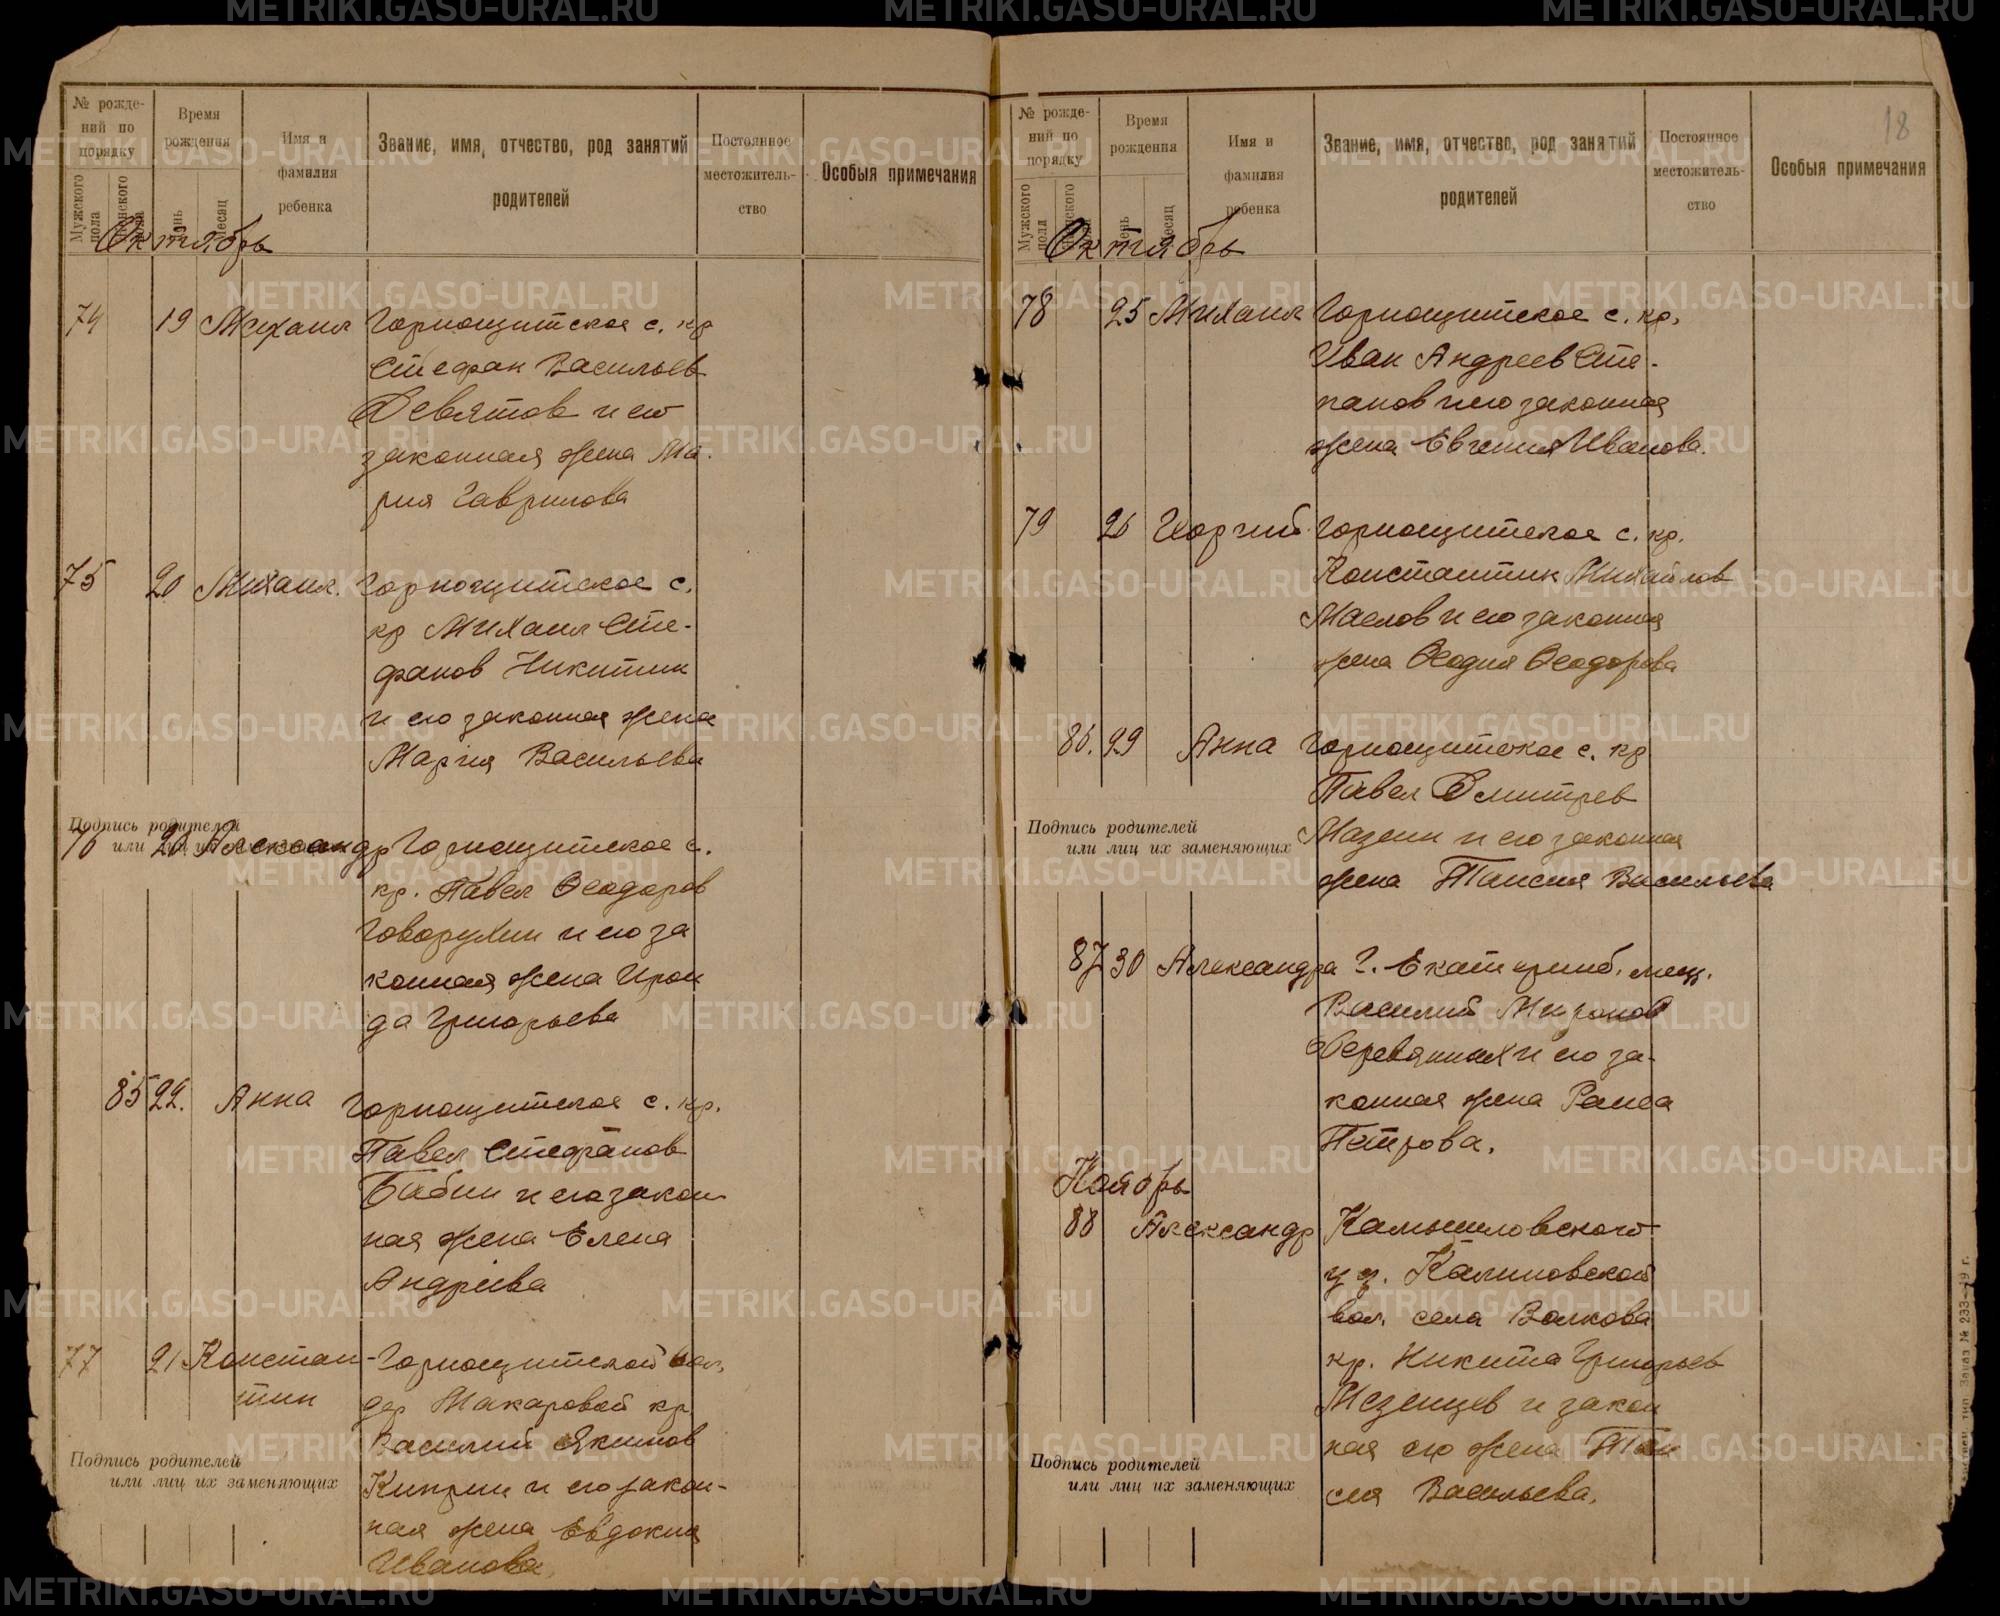 № рожде-
ний по
порядку
Время
рождения
Имя и
фамилия
ребенка
Звание, имя, отчество, род занятий
родителей
Постоянное
местожитель-
ство
Особыя примечания
Мужского
пола
Октябрь
74 19 Михаил Горнощитское с. кр
Стефан Васильев
Девятов и его
законная жена Ма-
рия Гаврилова
75 20 Михаил. Горнощитское с.
кр Михаил Сте-
фанов Никитин
и его законная жена
Мария Васильева
Подпись родителей
или лиц их заменяющих
76 20 Александр Горнощитское с.
кр. Павел Феодоров
Говорухин и его за
конная жена Ираи
да Григорьева
85 22. Анна Горнощитское с. кр.
Павел Стефанов
Бабин и его закон
ная жена Елена
Андреева
77 21 Констан-
тин
Горнощитской вол,
дер Макаровой кр
Василий Якимов
Киприн и его закон-
ная жена Евдокия
Иванова.
Подпись родителей
или лиц их заменяющих
18
№ рожде-
ний по
порядку
Время
рождения
Имя и
фамилия
ребенка
Звание, имя, отчество, род занятий
родителей
Постоянное
местожитель-
ство
Особыя примечания
Мужского
пола
Октябрь
78 25 Михаил Горнощитское с. кр.
Иван Андреев Сте-
панов и его законная
жена Евгения Иванова.
79 26 Георгий Горнощитское с. кр.
Константин Михайлов
Маслов и его законная
жена Феодия Феодорова
86. 29 Анна Горнощитское с. кр
Павел Дмитрев
Мазеин и его законная
жена Таисия Васильева
Подпись родителей
или лиц их заменяющих
87 30 Александра Г. Екатеринб. мещ.
Василий Миронов
Деревянных и его за-
конная жена Раиса
Петрова.
Ноябрь
88 Александр Камышловского
у у. Калиновской
вол. села Волкова
кр. Никита Григорьев
Мезенцев и закон
ная его жена Таи
сия Васильева.
Подпись родителей
или лиц их заменяющих
METRIKI.GASO-URAL.RU